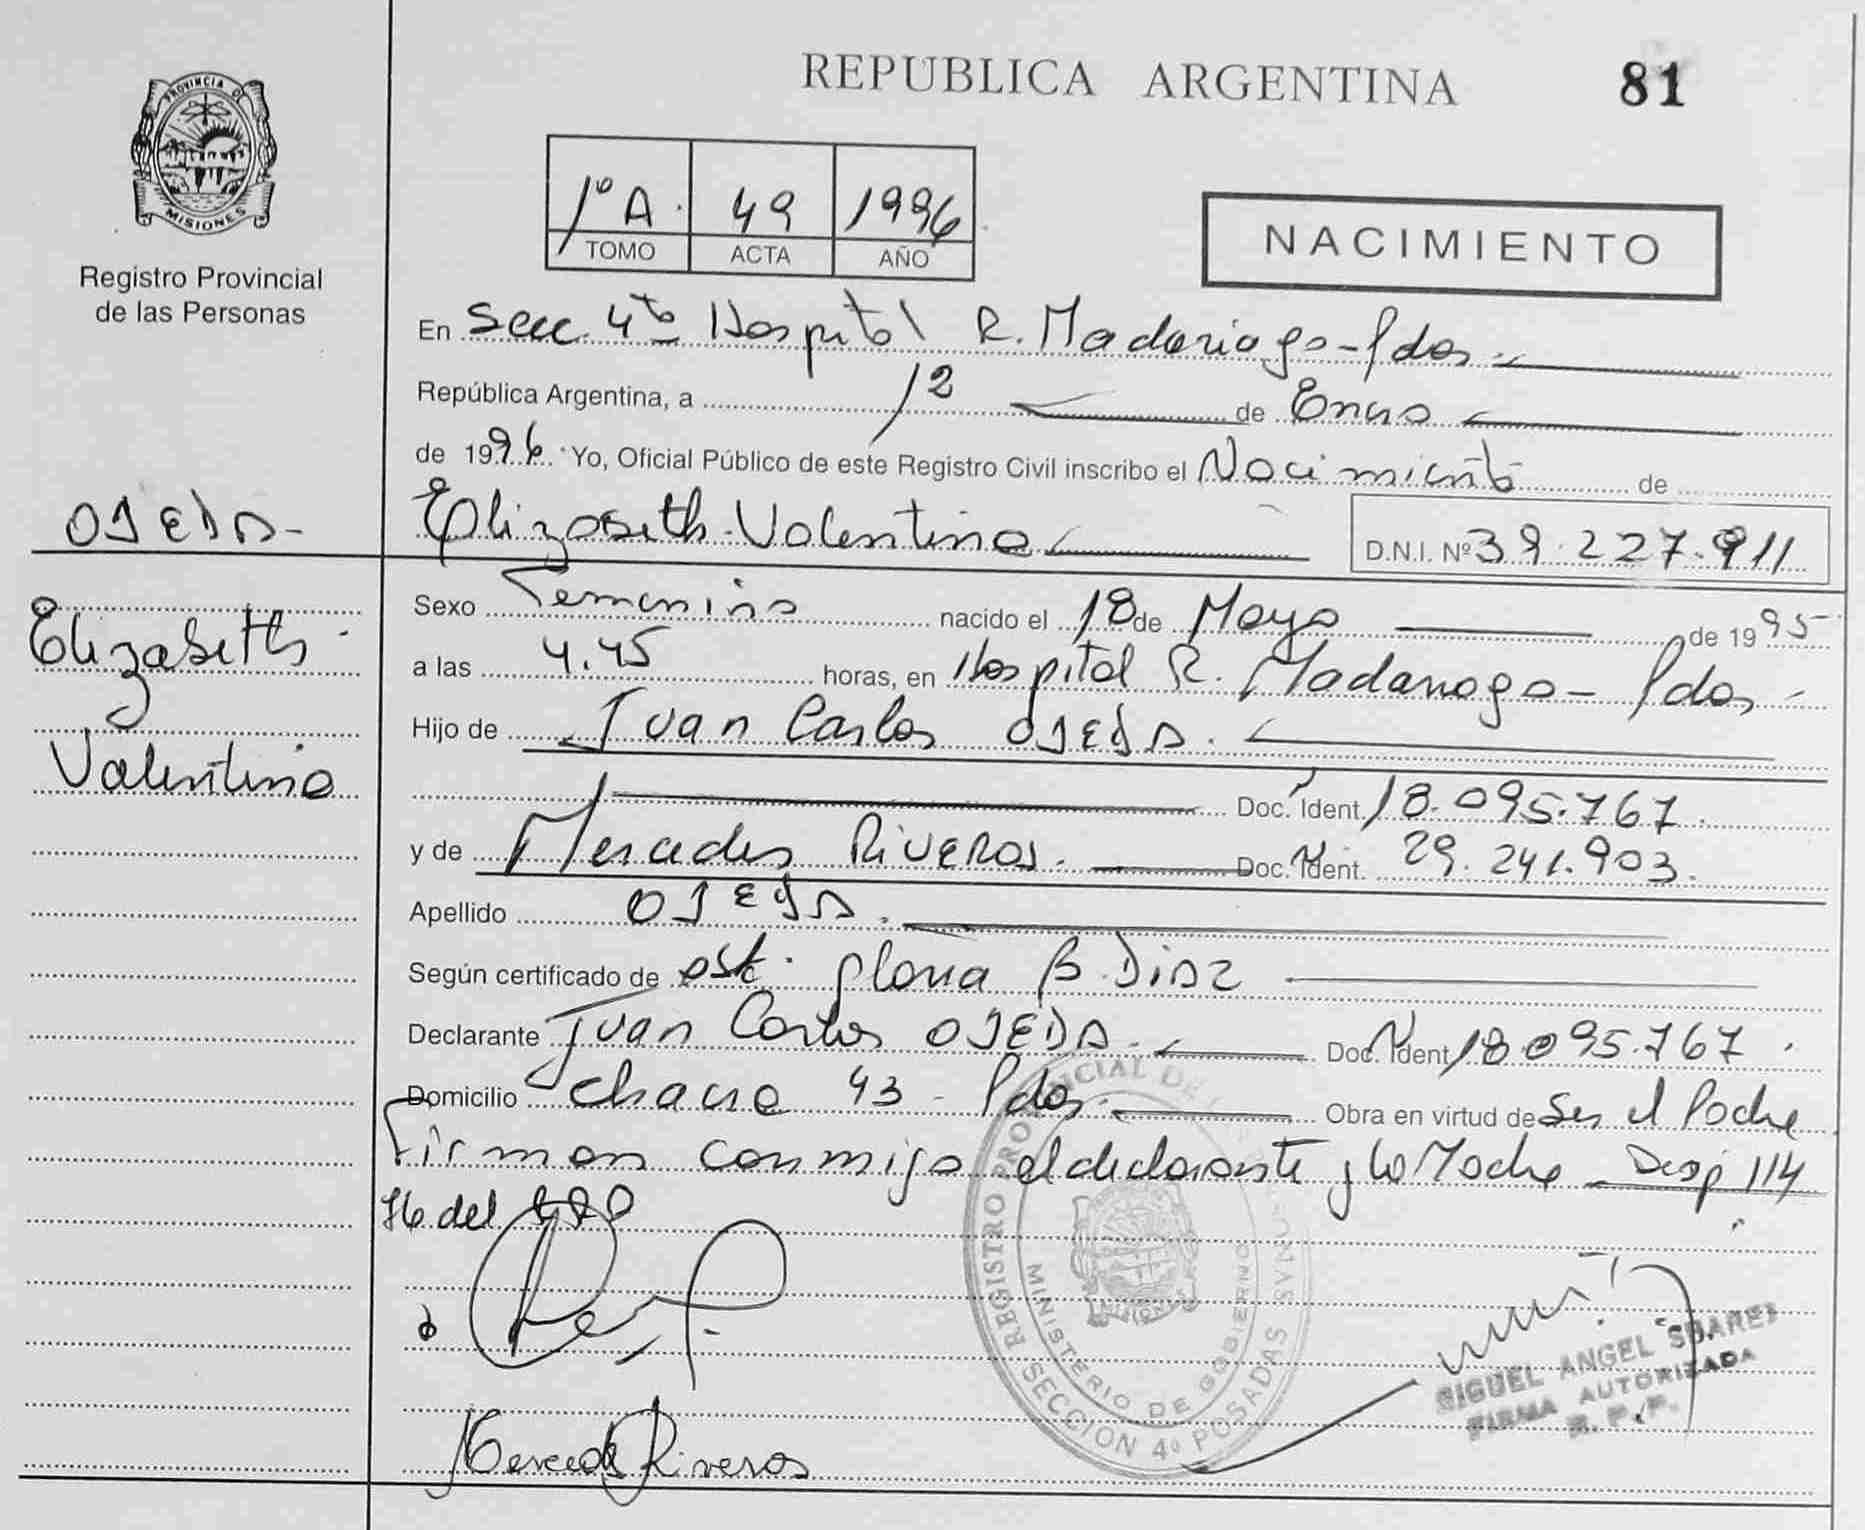 REPUBLICA ARGENTINA 81
PROVINCIA DE
MISIONES
Registro Provincial
de las Personas
1º A. 49 1996
TOMO ACTA AÑO
NACIMIENTO
En Secc. 4ta Hospital R. Madariaga - Pdas
República Argentina, a 12 de Enero
de 1996. Yo, Oficial Público de este Registro Civil inscribo el Nacimiento de
OJEDA- Elizabeth Valentina D.N.I. Nº 39.227.911
Sexo Femenino nacido el 18 de Mayo de 1995
Elizabeth
a las 4.45 horas, en Hospital R. Madariaga - Pdas -
Hijo de Juan Carlos OJEDA.
Valentina
Doc. Ident. 18.095.767.
y de Mercedes RIVEROS. Doc. Ident. 29.241.903.
Apellido OJEDA.
Según certificado de obst. Gloria B. Diaz
Declarante Juan Carlos OJEDA. Doc. Ident. 18.095.767.
Domicilio Chacra 43 - Pdas. Obra en virtud de Ser el Padre
Firman conmigo el declarante y la Madre Desp 114
76 del
REGISTRO PROVINCIAL DE LAS PERSONAS
MINISTERIO DE GOBIERNO
SECCION 4º POSADAS
MIGUEL ANGEL SUAREZ
FIRMA AUTORIZADA
R. P. P.
Mercedes Riveros